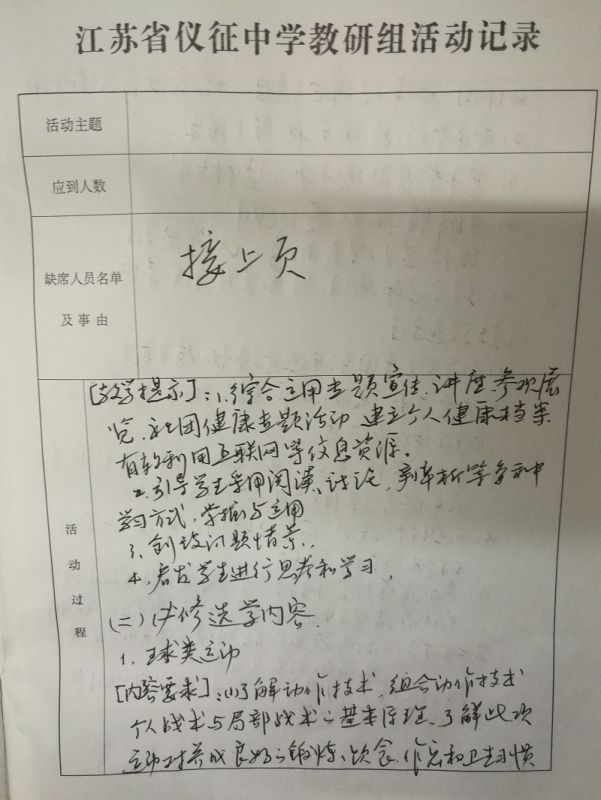 江苏省仪征中学教研组活动记录
活动主题
应到人数
缺席人员名单
及事由
接上页
活动过程
[教学提示]:1.综合运用专题宣传、讲座、参观展
览、社团健康专题活动 建立个人健康档案
有效利用互联网等信息资源。
2.引导学生采用阅读、讨论、案例分析等多种
学习方式,掌握与运用
3.创设问题情景.
4.启发学生进行思考和学习.
(二)必修选学内容.
1.球类运动
[内容要求]:(1)了解动作技术,组合动作技术
个人战术与局部战术之基本原理、了解此项
运动对养成良好之锻炼、饮食、作息和卫生习惯